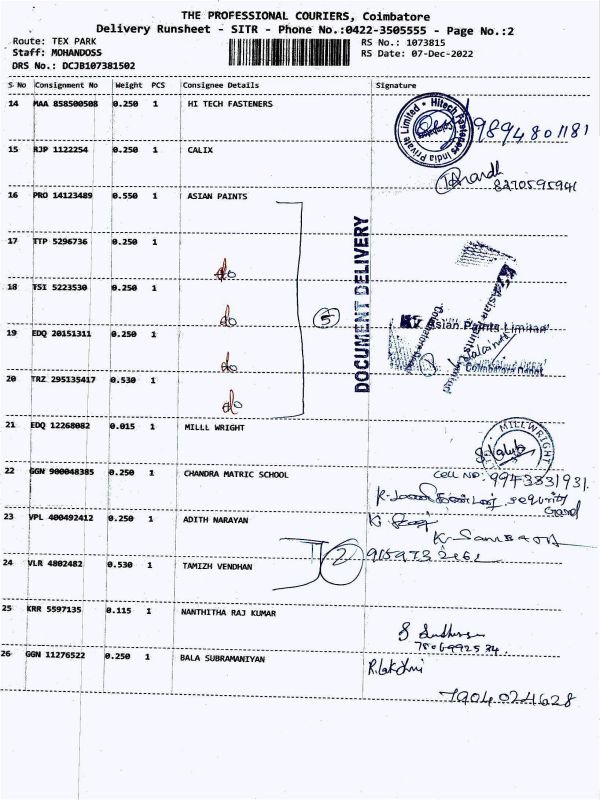 THE PROFESSIONAL COURIERS, Coimbatore
Delivery Runsheet - SITR - Phone No.:0422-3505555 - Page No.:2
Route: TEX PARK
Staff: MOHANDOSS
DRS No.: DCJB107381502
RS No.: 1073815
RS Date: 07-Dec-2022
S No Consignment No Weight PCS Consignee Details Signature
14 MAA 858500508 0.250 1 HI TECH FASTENERS
Hitech Fasteners India Private Limited
9894801181
15 RJP 1122254 0.250 1 CALIX
8270595941
16 PRO 14123489 0.550 1 ASIAN PAINTS
17 TTP 5296736 0.250 1 do
18 TSI 5223530 0.250 1 do
19 EDQ 20151311 0.250 1 do
20 TRZ 295135417 0.530 1 do
5
DOCUMENT DELIVERY
Asian Paints Limited
21 EDQ 12268082 0.015 1 MILLL WRIGHT
MILLWRIGHT
CELL NO: 9943831931.
22 GGN 900048385 0.250 1 CHANDRA MATRIC SCHOOL
security Gard
23 VPL 400492412 0.250 1 ADITH NARAYAN
24 VLR 4802482 0.530 1 TAMIZH VENDHAN
2
25 KRR 5597135 0.115 1 NANTHITHA RAJ KUMAR
26 GGN 11276522 0.250 1 BALA SUBRAMANIYAN
R.Lakshmi
7904024628